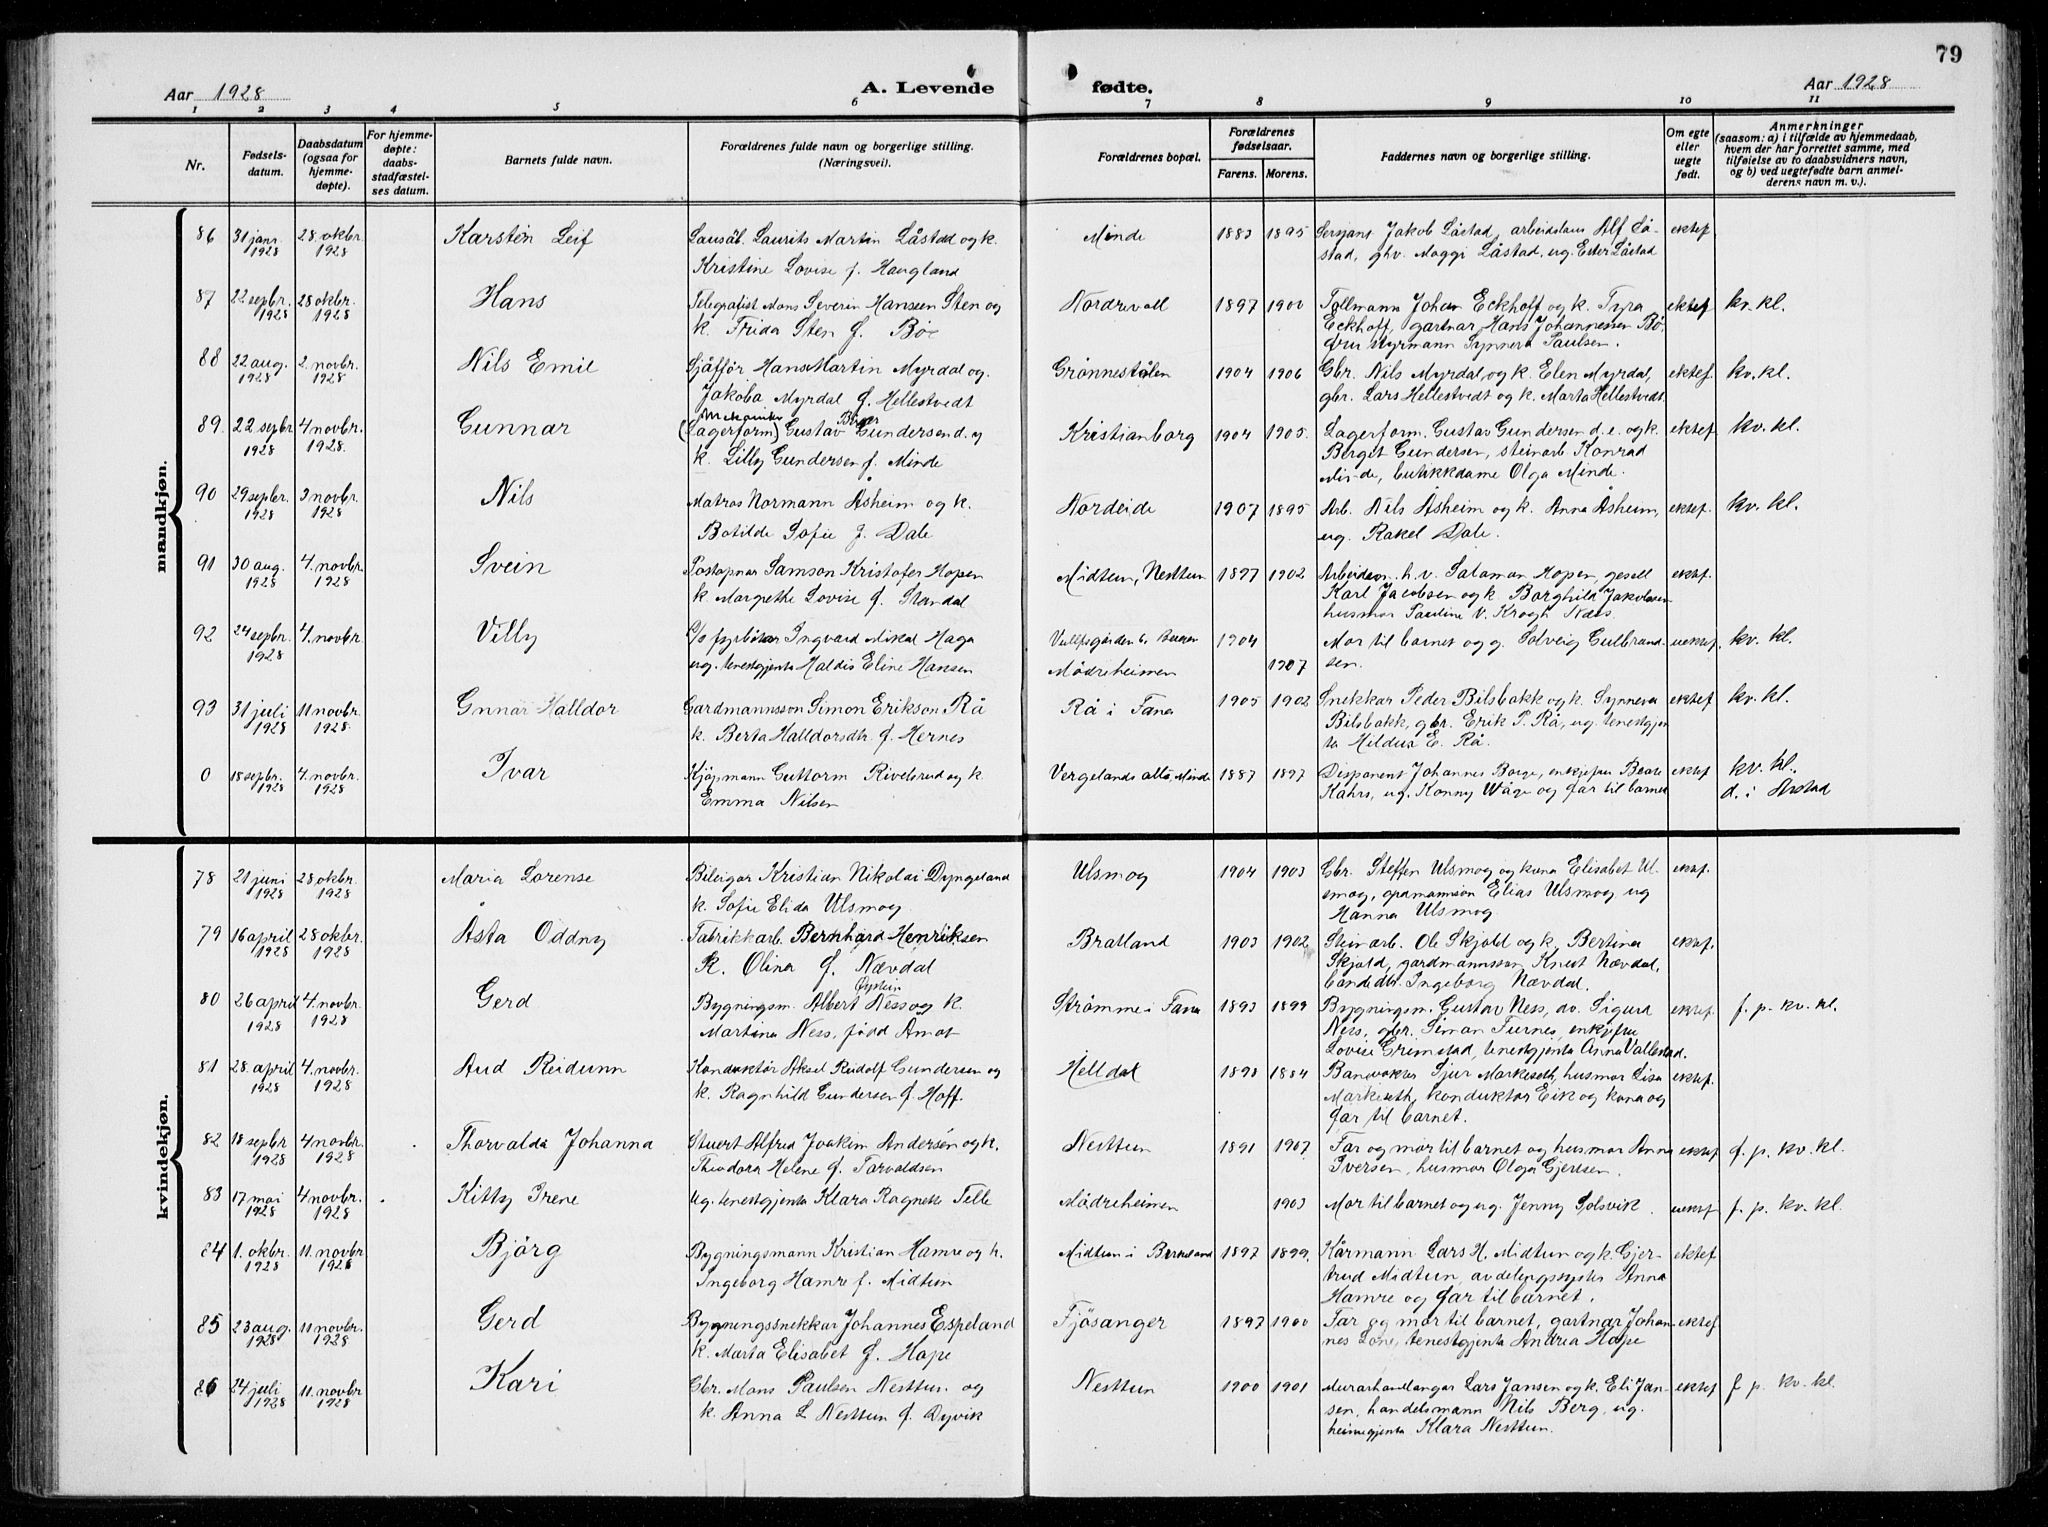 79
Aar 1928 A. Levende fødte. Aar 1928
1 2 3 4 5 6 7 8 9 10 11
Nr.
Fødsels-
datum.
Daabsdatum
(ogsaa for
hjemme-
døpte).
For hjemme-
døpte:
daabs-
stadfæstel-
ses datum.
Barnets fulde navn.
Forældrenes fulde navn og borgerlige stilling.
(Næringsvei).
Forældrenes bopæl.
Forældrenes
fødselsaar.
Farens. Morens.
Faddernes navn og borgerlige stilling.
Om egte
eller
uegte
født.
Anmerkninger
(saasom: a) i tilfælde av hjemmedaab,
hvem der har forrettet samme, med
tilføielse av to daabsvidners navn,
og b) ved uegtefødte barn anmel-
derens navn m. v.).
mandkjøn.
86 31 janr. 1928 28. okbr. 1928 Karsten Leif
Lausab. Laurits Martin Låstad og k.
Kristine Lovise f. Haugland
Minde 1883 1895
Sersjant Jakob Låstad, arbeidslaus Alf Lå-
stad, ghv. Maggi Låstad, ug. Ester Låstad
ektef.
87 22 sepbr. 1928 28 okbr. 1928 Hans
Telegrafist Mons Severin Hansen Sten og
k. Frida Sten f. Bøe
Nordrevoll 1897 1900
Tollmann Johan Eckhoff og k. Tyra
Eckhoff, gartnar Hans Johannessen Bø,
fru Myrmann Synneva Paulsen.
ektef kv. kl.
88 22 aug. 1928 2. novbr. 1928 Nils Emil
Sjåfför Hans Martin Myrdal og.
Jakoba Myrdal f. Hellestvedt
Grönnestölen 1904 1906
Gbr. Nils Myrdal, og k. Elen Myrdal,
gbr. Lars Hellestvedt og k. Marta Hellestvedt.
ektef. kv. kl.
89. 22 sepbr 1928 4 novbr. 1928. Gunnar
Mekaniker Birger
(Lagerform) Gustav Gundersen d. y
k. Lilly Gundersen f. Minde
Kristianborg 1904 1905.
Lagerform. Gustav Gundersen d. e. og k.
Berget Gundersen, steinarb Konrad
Minde, butikkdame Olga Minde.
ektef. kv. kl.
90 29 sepbr. 1928 3 novbr. 1928 Nils
Matros Normann Åsheim og k.
Botilde Sofie f. Dale
Nordeide 1907 1895
Arb. Nils Åsheim og k. Anna Åsheim,
ug. Rakel Dale.
ektef. kv. kl.
91 30 aug. 1928 4. novbr. 1928 Svein
Postopnar Samson Kristofer Hopen
k. Margrethe Lovise f. Standal
Midtun, Nesttun 1897 1902
Arbeidsm. h. v. Salamon Hopen, gesell
Karl Jacobsen og k. Borghild Jakobsen
husmor Pauline v. Krogh Næs.
ektef.
92 24 sepbr. 1928 4. novbr. Villy
Ingvard Mikal Haga
ug. tenestgjenta Haldis Eline Hansen
Mödreheimen 1904 1907
Mor til barnet og g. Solveig Gulbrand-
sen.
uektef. kv. kl.
93 31 juli 1928 11 novbr. 1928. Gunnar Halldor
Gardmannsson Simon Erikson Rå
k. Berta Halldorsdtr. f. Hernes
Rå i Fana 1905 1902
Snekkar Peder Bilsbakk og k. Synneva
Bilsbakk, gbr. Erik P. Rå, ug. tenestgjen
ta Hildur E. Rå.
ektef kv. kl.
0 18 sepbr. 1928 4. novbr. 1928 Ivar
Kjöpmann Guttorm Rivelsrud og k
Emma Nilsen
Vergelands alle, Minde 1887 1897
Disponent Johannes Borge, enkjefru Beate
Kahrs, ug. Konny Våge og far til barnet
ektef kv. kl.
d. i Årstad
kvindekjøn.
78 21 juni 1928 28 okbr. 1928 Maria Lorense
Bileigar Kristian Nikolai Dyngeland
k. Sofie Elida Ulsmog
Ulsmog 1904 1903
Gbr. Steffen Ulsmog og kona Elisabet Ul-
smog, gardmannsson Elias Ulsmog ug
Hanna Ulsmog
ektef.
79 16 april 1928 28 okbr. 1928 Åsta Oddny
Fabrikkarb. Bernhard Henriksen
k. Olina f. Nævdal
Bratland 1903 1902
Steinarb. Ole Skjold og k. Bertina
Skjold, gardmannsson Knut Nævdal,
bondedtr. Ingeborg Nævdal.
ektef.
80 26 april 1928 4. novbr. 1928 Gerd
Öystein
Bygningsm. Albert Ness og k.
Martina Ness, född Åmot
Strömme i Fana 1893 1899
Bygningsm. Gustav Ness, av. Sigurd
Ness, gbr. Simon Turnes, enkjefru
Lovise Grimstad, tenestgjenta Anna Vallestad.
ektef f. p. kv. kl.
81 28. april 1928 4. novbr. 1928 Aud Reidunn
Konduktör Aksel Rudolf Gundersen og
k. Ragnhild Gundersen f. Hoff.
Helldal 1890 1884
Banvoktar Sjur Markeseth, husmor Lisa
Markeseth, konduktör Eik og kona og
far til barnet.
ektef.
82 18 sepbr 1928 4 novbr. 1928 Thorvalda Johanna
Stuert Alfred Joakim Andersen og k.
Theodora Helene f. Torvaldsen
Nesttun 1891 1907
Far og mor til barnet og husmor Anna
Iversen, husmor Olga Gjertsen.
ektef f. p. kv. kl.
83 17 mai 1928 4 novbr. 1928 Kitty Irene
Ug. tenestgjenta Klara Ragnette Telle
Mödreheimen 1903
Mor til barnet og ug. Jenny Solsvik.
uektef f. p. kv. kl.
84 1. okbr. 1928 11. novbr. 1928 Björg
Bygningsmann Kristian Hamre og k.
Ingeborg Hamre f. Midtun
Midtun i Birkeland 1897 1899.
Kårmann Lars H. Midtun og k. Gjer-
trud Midtun, avdelingssyster Anna
Hamre og far til barnet.
ektef
85 23 aug. 1928 11 novbr. 1928 Gerd
Bygningssnekkar Johannes Espeland
k. Marta Elisabet f. Hope
Fjösanger 1897 1900
Far og mor til barnet, gartnar Johan-
nes Lone, tenestgjenta Andrea Hope
ektef
86 24 juli 1928 11. novbr 1928 Kari
Gbr. Mons Paulsen Nesttun og
k. Anna L Nesttun f. Dyvik
Nesttun 1900 1901
Murarhandlangar Lars Jansen og k. Eli Jan-
sen, handelsmann Nils Berg, ug.
heimegjenta Klara Nesttun.
ektef f p. kv. kl.